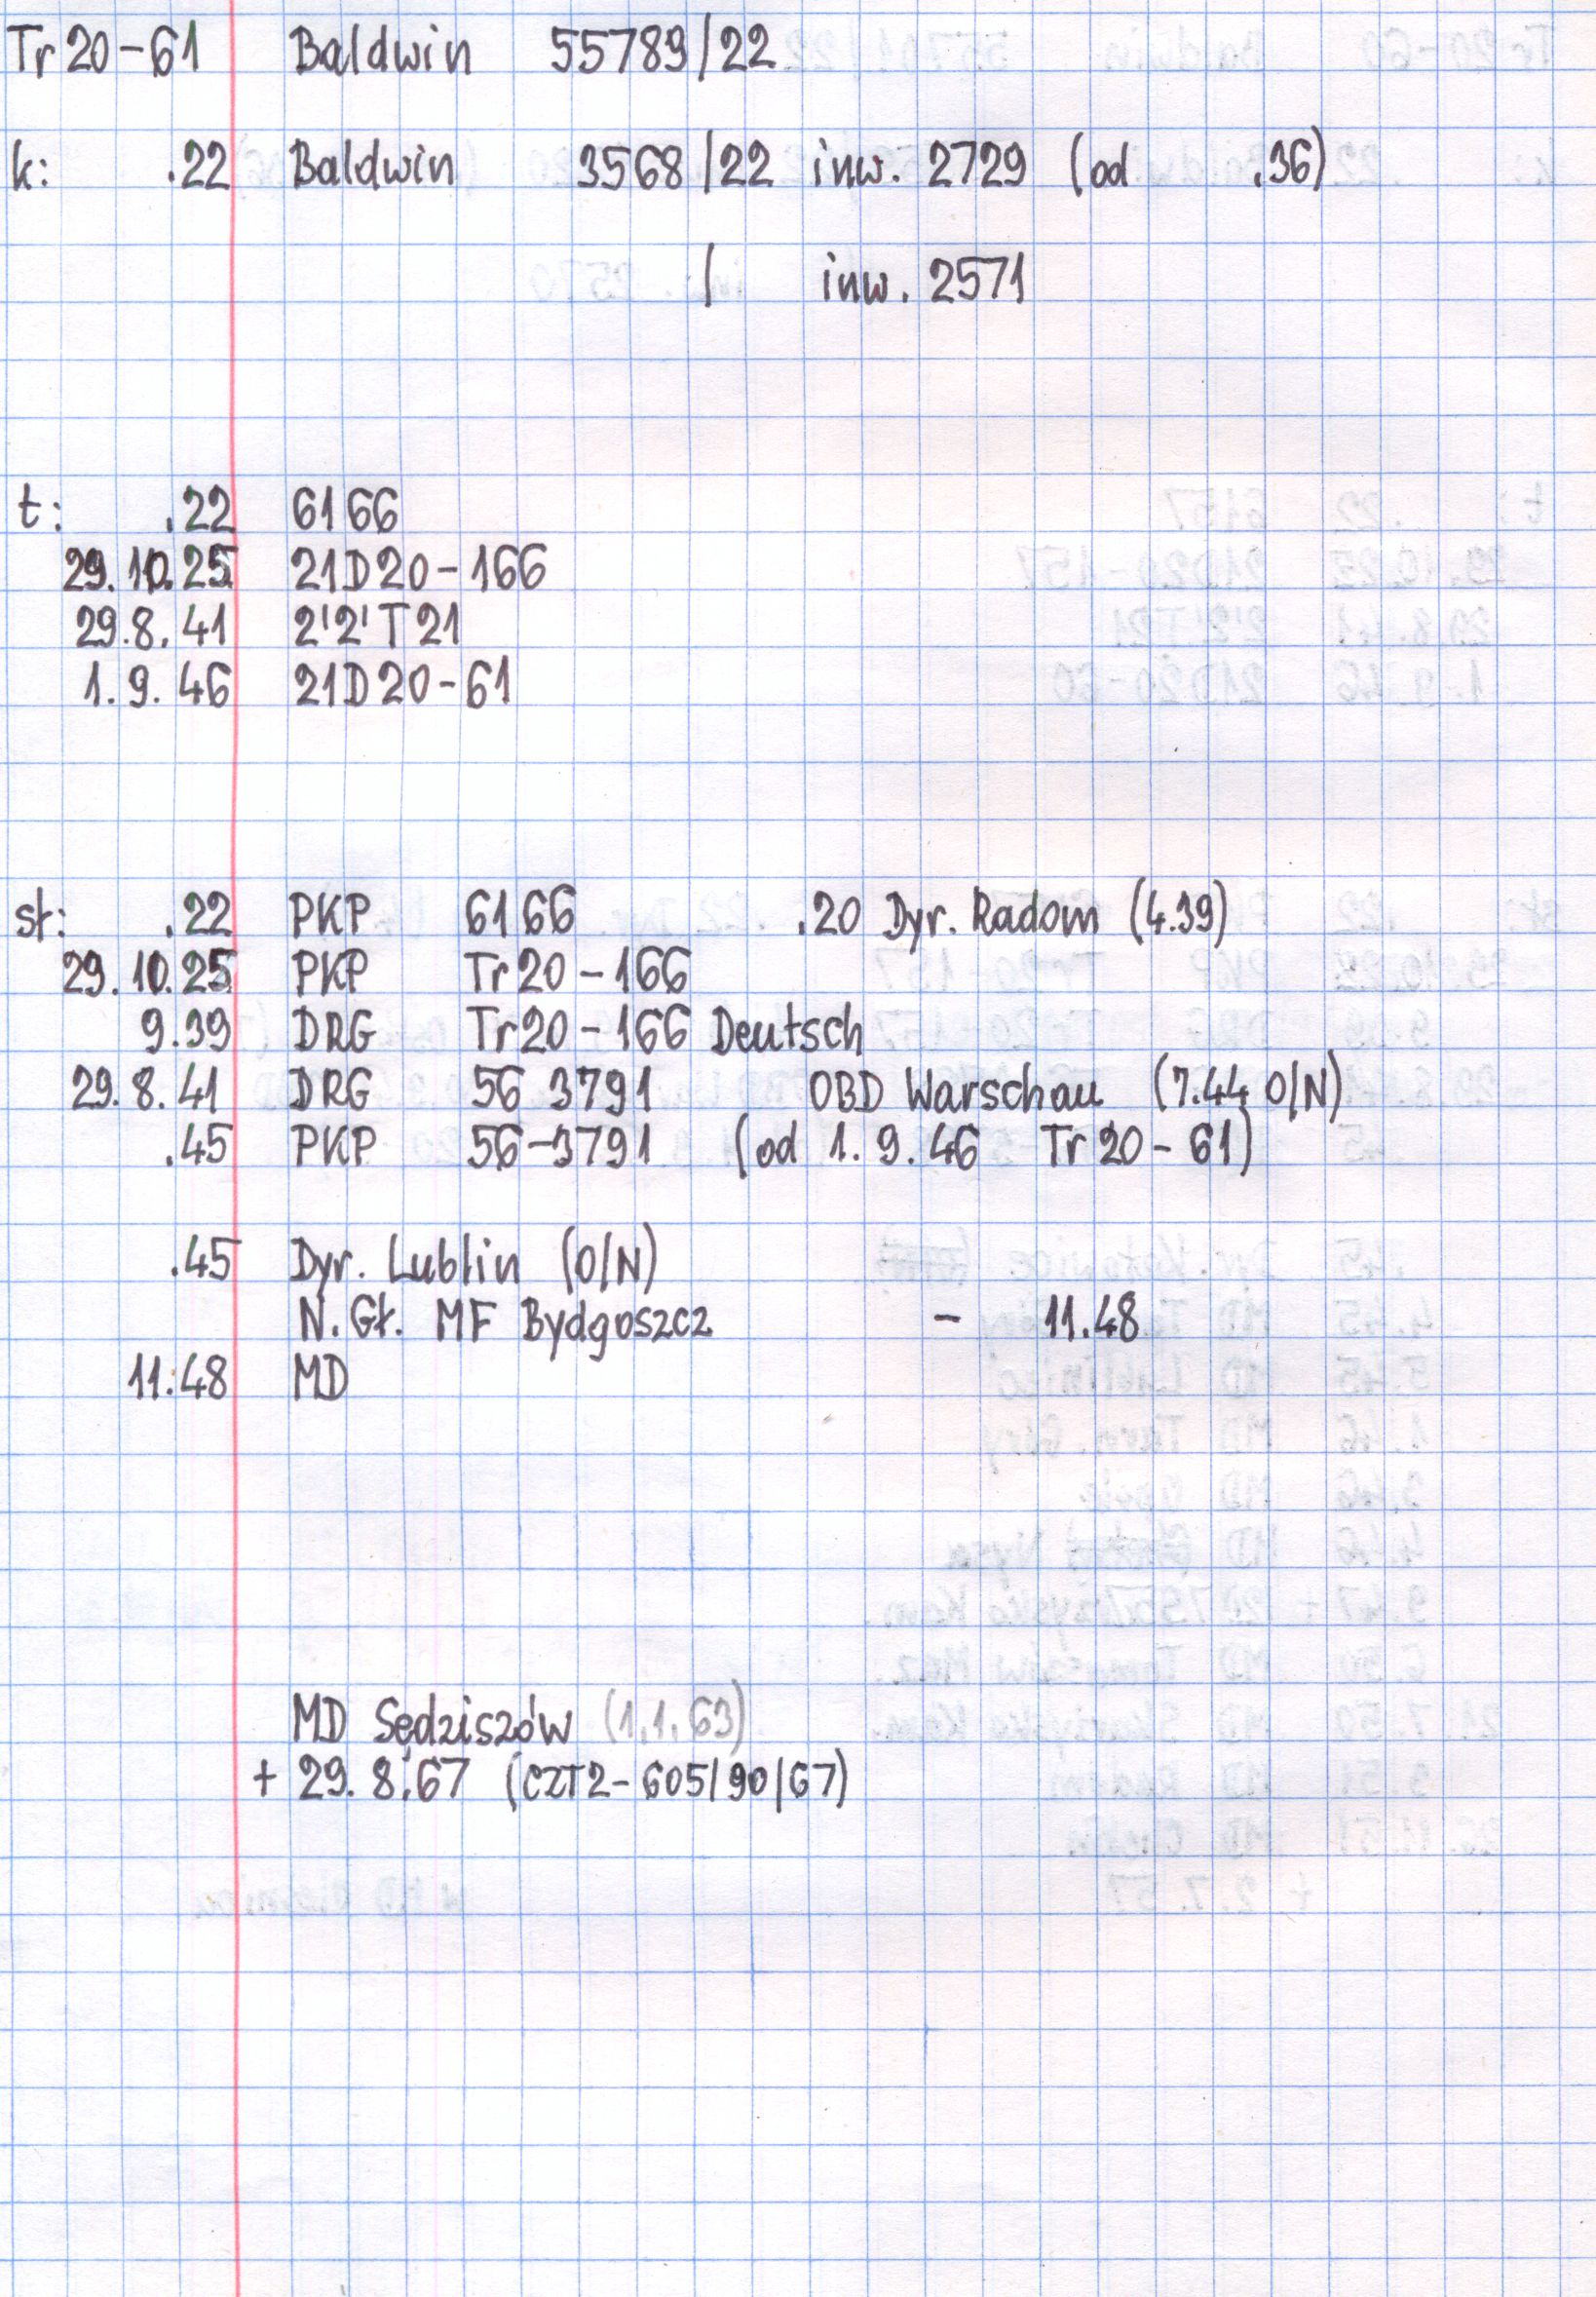 Tr 20-61 Baldwin 55789/22
k: .22 Baldwin 3568/22 inw. 2729 (od .36)
/ inw. 2571
t: .22 6166
29.10.25 21D20-166
29.8.41 2'2'T21
1.9.46 21D20-61
st: .22 PKP 6166 .20 Dyr. Radom (4.39)
29.10.25 PKP Tr20-166
9.39 DRG Tr20-166 Deutsch
29.8.41 DRG 56 3791 OBD Warschau (7.44 O/N)
.45 PKP 56-3791 (od 1.9.46 Tr 20-61)
.45 Dyr. Lublin (O/N)
N.Gł. MF Bydgoszcz - 11.48
11.48 MD
MD Sędziszów (1.1.63)
+ 29.8.67 (CZT2-605/90/67)